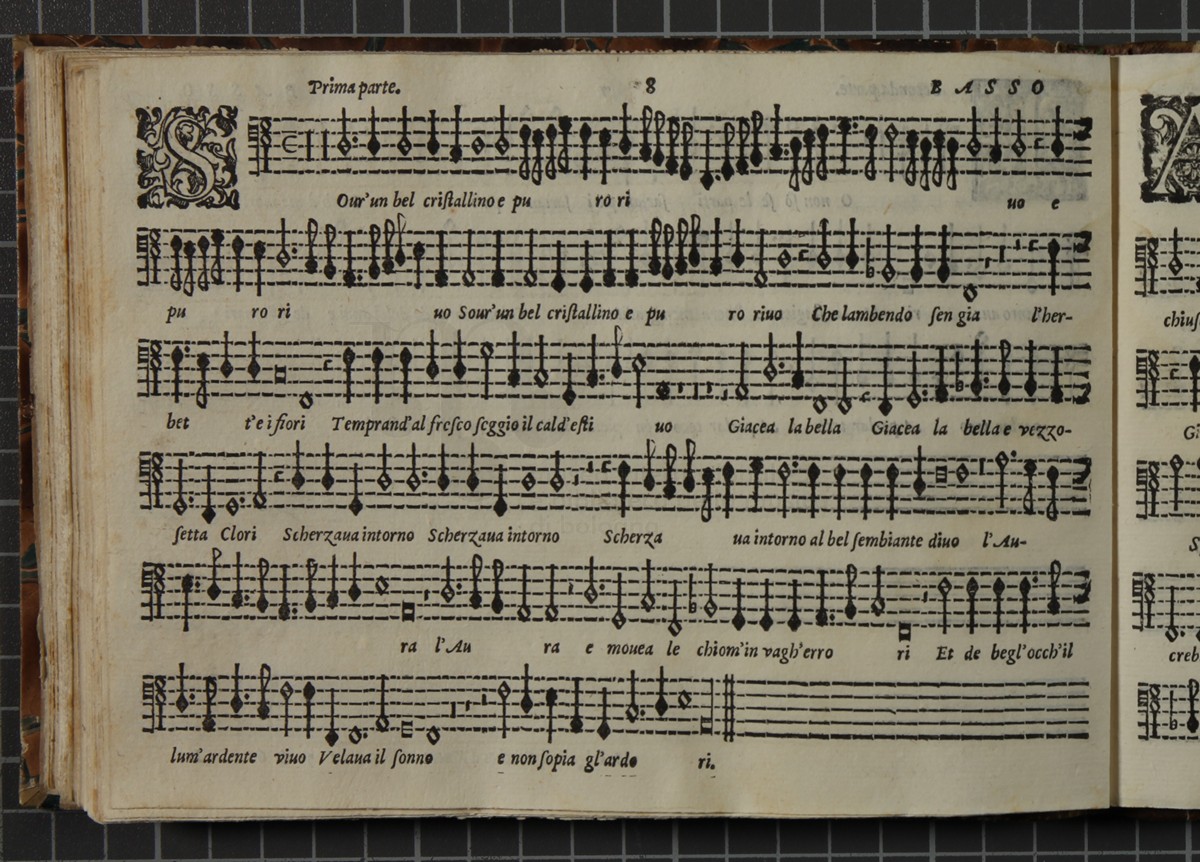 Prima parte. 8 BASSO
SOur'un bel criſtallino e pu ro ri uo e
pu ro ri uo Sour'un bel criſtallino e pu ro riuo Che lambendo ſen gia l'her-
bet t'e i fiori Temprand'al freſco ſeggio il cald'eſti uo Giacea la bella Giacea la bella e vezzo-
ſetta Clori Scherzaua intorno Scherzaua intorno Scherza ua intorno al bel ſembiante diuo l'Au-
ra l'Au ra e mouea le chiom'in vagh'erro ri Et de begl'occh'il
lum'ardente viuo Velaua il ſonno e non ſopia gl'ardo ri.
A
chiuſ
Gi
S
creb